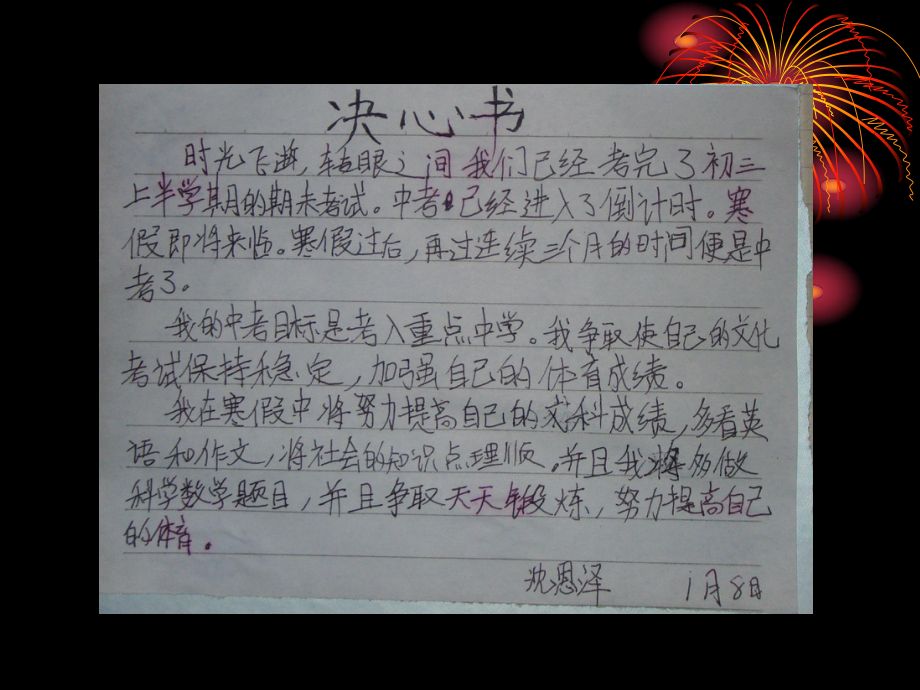 决心书
时光飞逝，转眼之间我们已经考完了初三
上半学期的期末考试。中考已经进入了倒计时。寒
假即将来临。寒假过后，再过连续三个月的时间便是中
考了。
我的中考目标是考入重点中学。我争取使自己的文化
考试保持稳定，加强自己的体育成绩。
我在寒假中将努力提高自己的文科成绩，多看英
语和作文，将社会的知识点理顺。并且我将多做
科学数学题目，并且争取天天锻炼，努力提高自己
的体育。
沈恩泽 1月8日